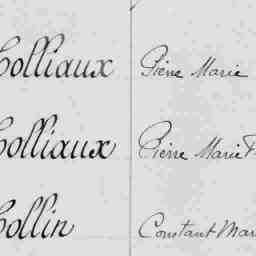 Colliaux Pierre Marie
Colliaux Pierre Marie
Collin Constant Mar